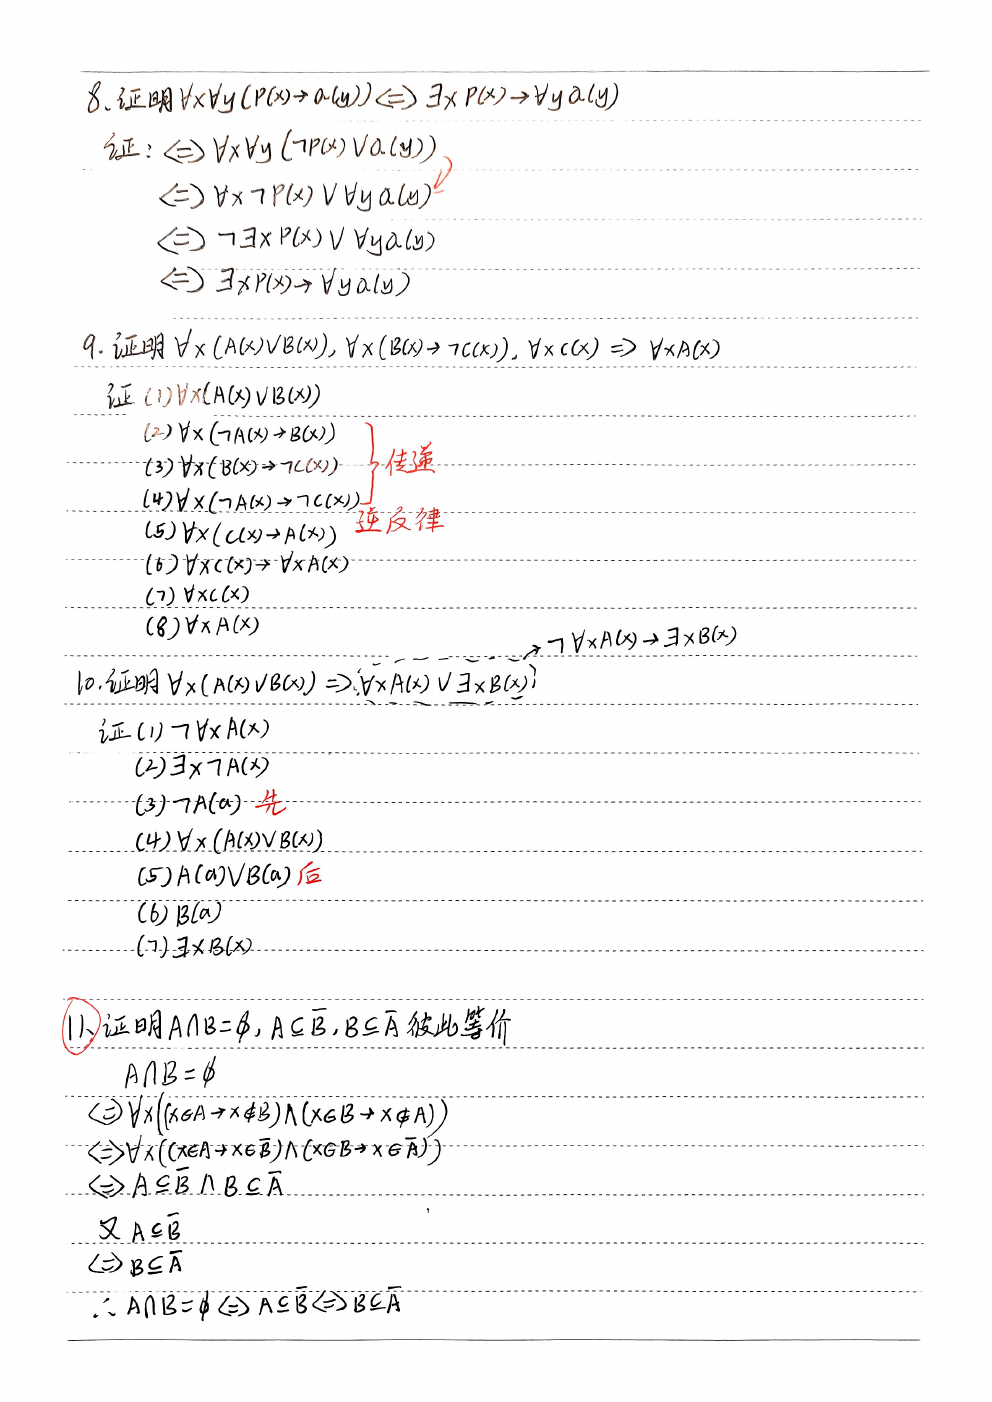 8. 证明∀x∀y(P(x)→Q(y))<=>∃xP(x)→∀yQ(y)
证: <=>∀x∀y(¬P(x)∨Q(y))
<=>∀x¬P(x)∨∀yQ(y)
<=>¬∃xP(x)∨∀yQ(y)
<=>∃xP(x)→∀yQ(y)
9. 证明∀x(A(x)∨B(x)), ∀x(B(x)→¬C(x)), ∀xC(x)=>∀xA(x)
证 (1)∀x(A(x)∨B(x))
(2)∀x(¬A(x)→B(x))
(3)∀x(B(x)→¬C(x)) 传递
(4)∀x(¬A(x)→¬C(x))
逆反律
(5)∀x(C(x)→A(x))
(6)∀xC(x)→∀xA(x)
(7)∀xC(x)
(8)∀xA(x)
→¬∀xA(x)→∃xB(x)
10. 证明∀x(A(x)∨B(x))=>∀xA(x)∨∃xB(x)
证 (1)¬∀xA(x)
(2)∃x¬A(x)
(3)¬A(a) 先
(4)∀x(A(x)∨B(x))
(5)A(a)∨B(a) 后
(6)B(a)
(7)∃xB(x)
11、证明A∩B=∅, A⊆B̅, B⊆A̅ 彼此等价
A∩B=∅
<=>∀x((x∈A→x∉B)∧(x∈B→x∉A))
<=>∀x((x∈A→x∈B̅)∧(x∈B→x∈A̅))
<=>A⊆B̅∧B⊆A̅
又 A⊆B̅
<=>B⊆A̅
∴A∩B=∅<=>A⊆B̅<=>B⊆A̅